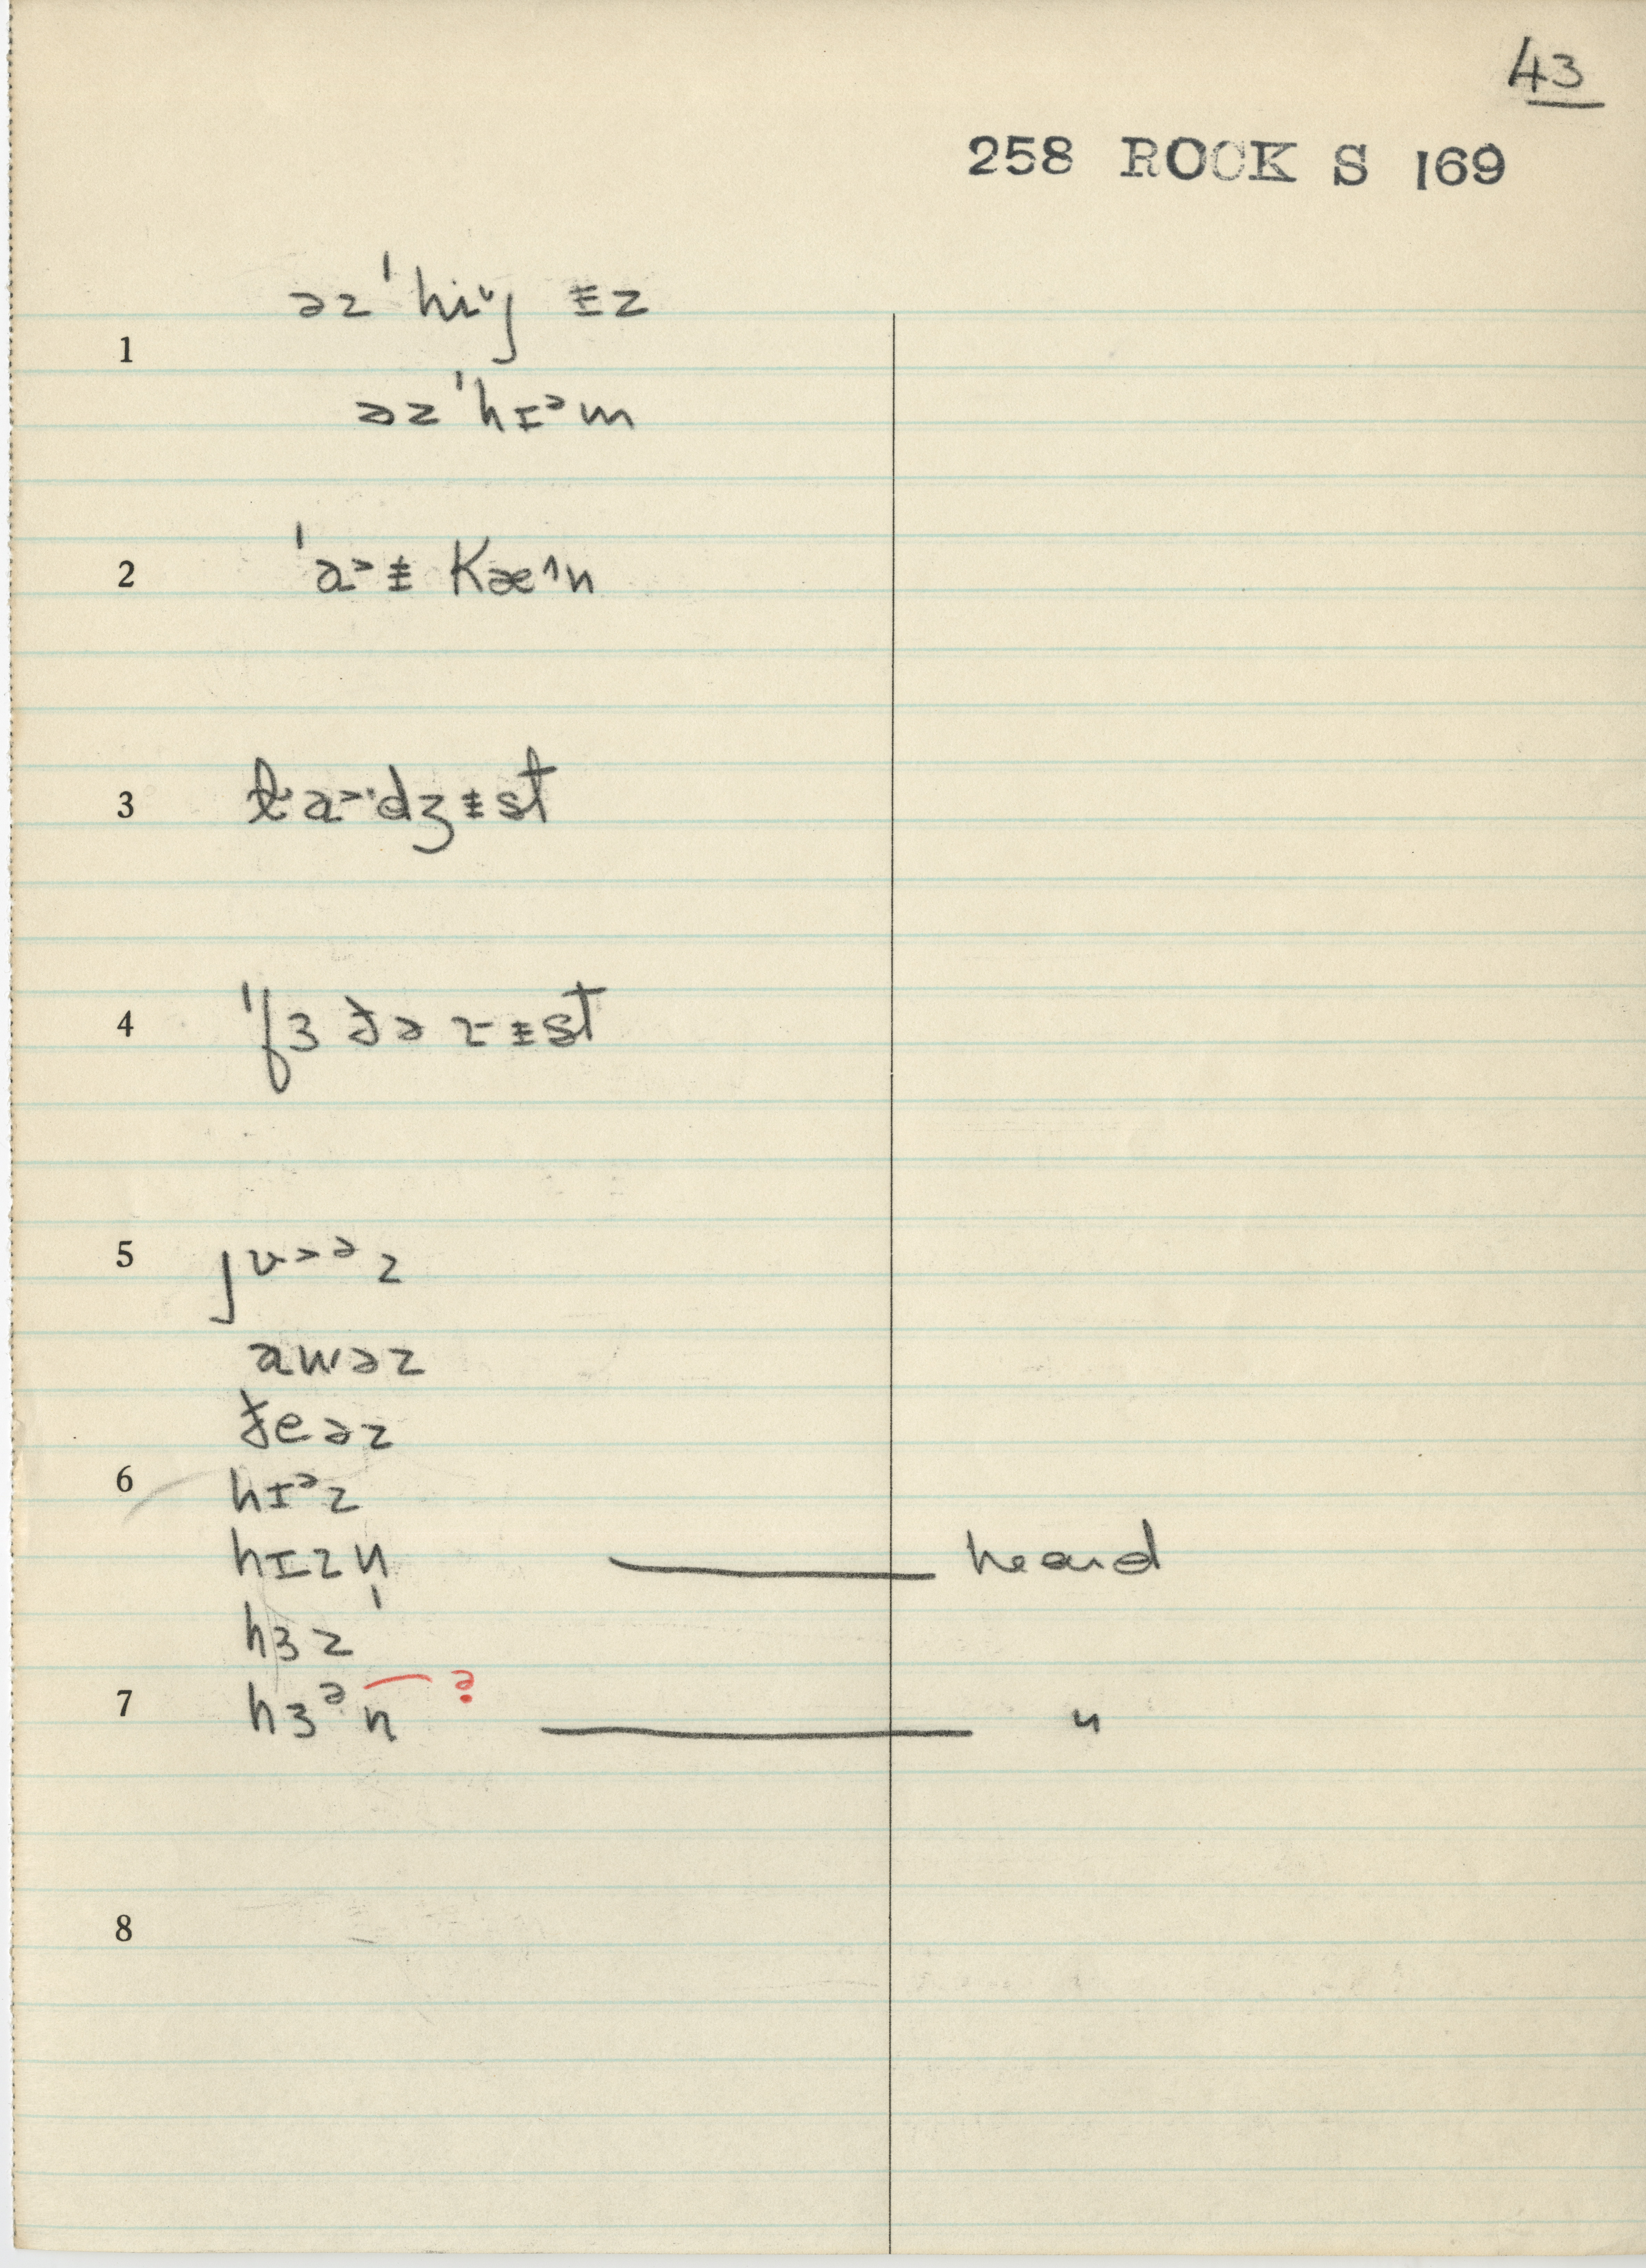 43
258 ROCK S 169
1 əz ˈhiᵛȷ ɨz
əz ˈhɪᵊm
2 ˈa˃ɨ Kæ^n
3 la˃·dʒɨst
4 ˈfɜðə z-ɨst
5 ȷʊ˃ᵊz
awəz
ðeəz
6 hɪᵊz
hɪzn̩ heard
hɜz
7 hɜᵊn ? "
8